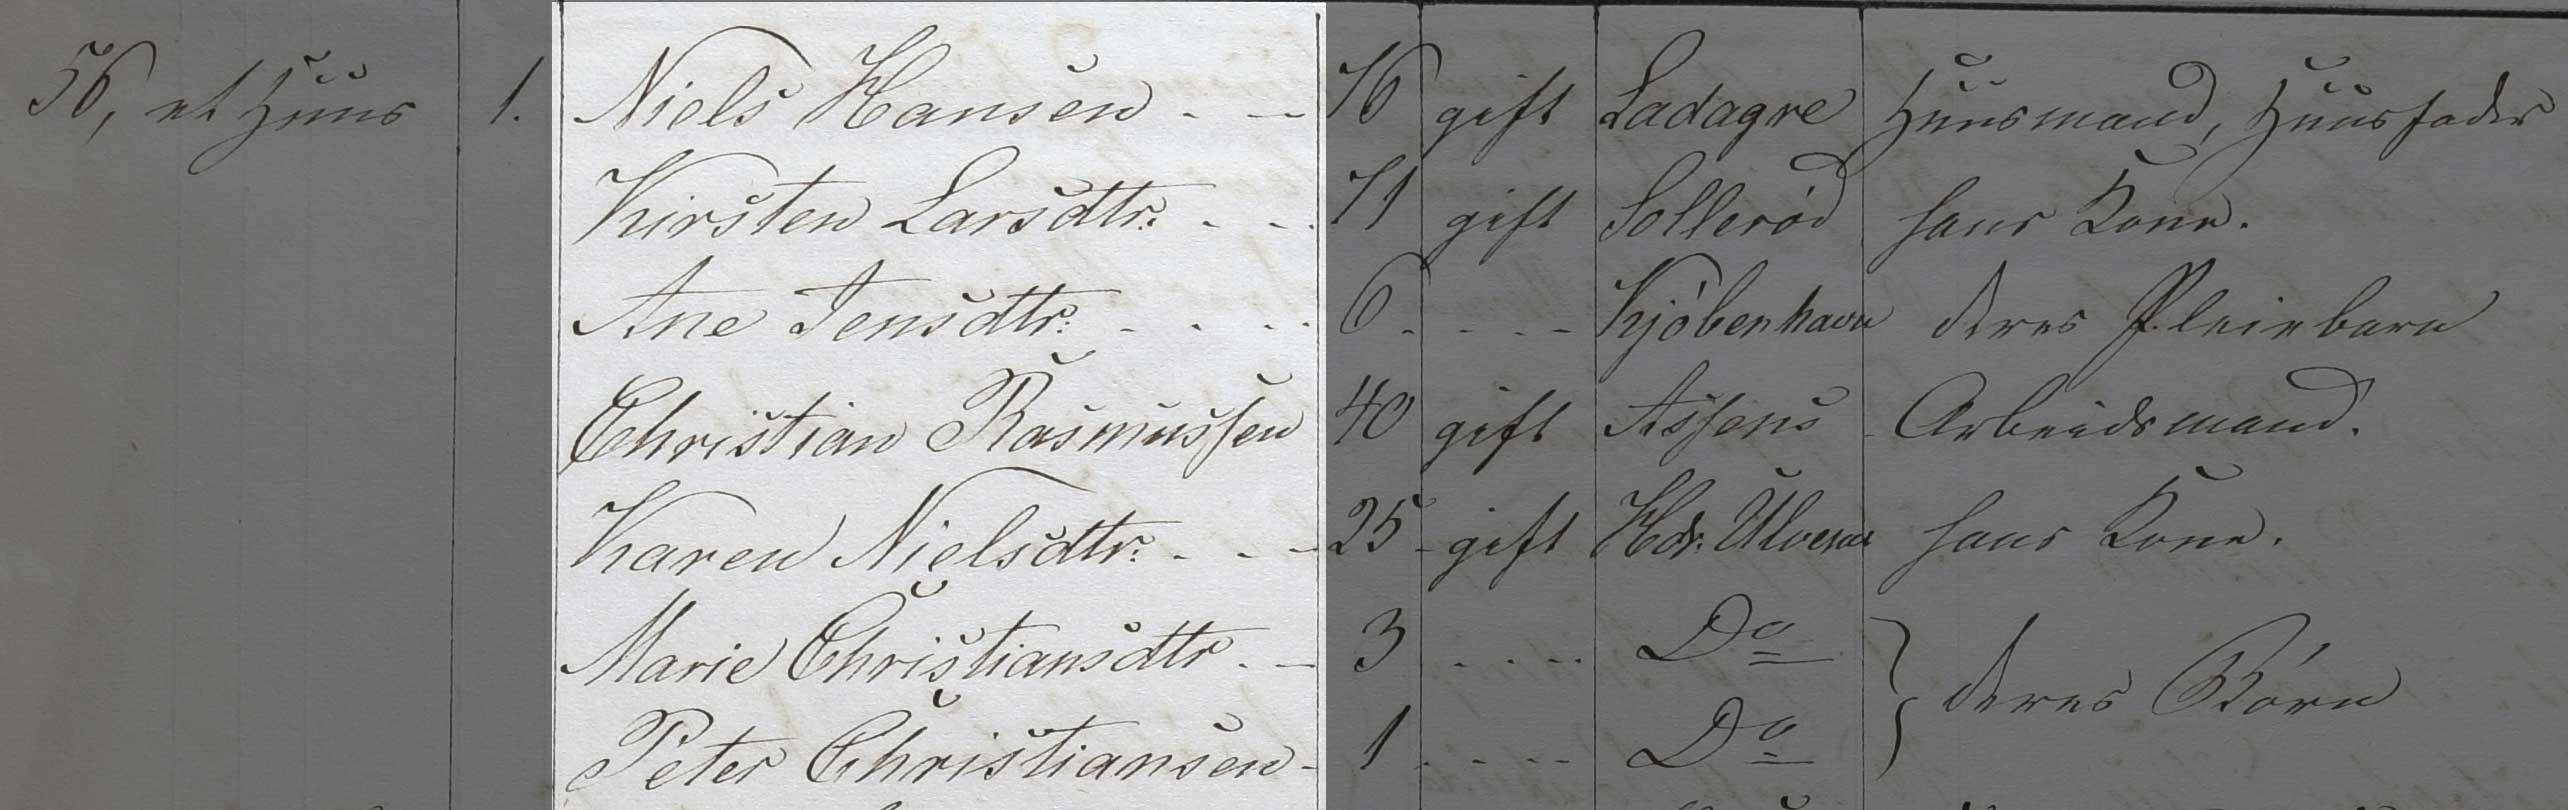 56, et Huus 1. Niels Hansen - - 76 gift Ladagre Huusmand, Huusfader
Kirsten Larsdtr. - - 71 gift Sollerød hans Kone.
Ane Jensdtr. - - - 6 - - - Kjøbenhavn deres Pleiebarn
Christian Rasmussen 40 gift Assens Arbeidsmand.
Karen Nielsdtr. - - - 25 - gift Hds. hans Kone.
Marie Christiansdtr. - - 3 - - - - Do
deres Børn
Peter Christiansen - 1 - - - - Do